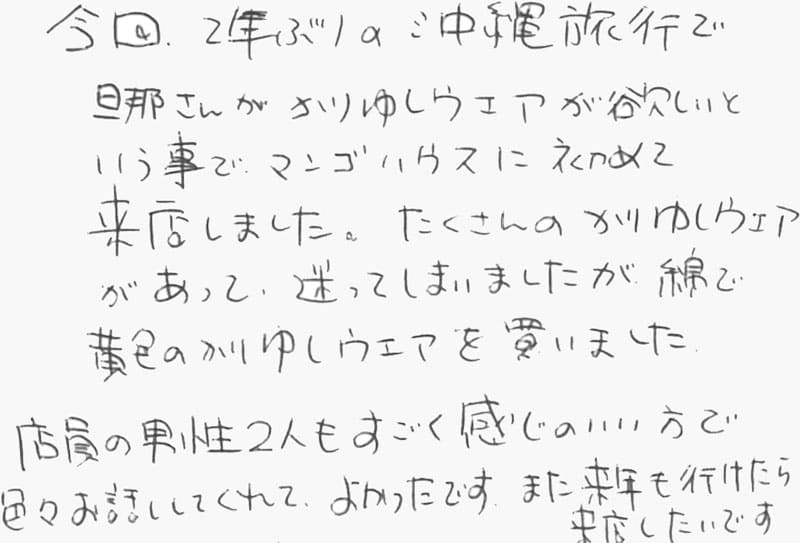 今回、2年ぶりの沖縄旅行で
旦那さんがかりゆしウエアが欲しいと
いう事で、マンゴハウスに初めて
来店しました。たくさんのかりゆしウェア
があって、迷ってしまいましたが、綿で
黄色のかりゆしウエアを買いました。
店員の男性2人もすごく感じのいい方で
色々お話ししてくれて、よかったです。また来年も行けたら
来店したいです